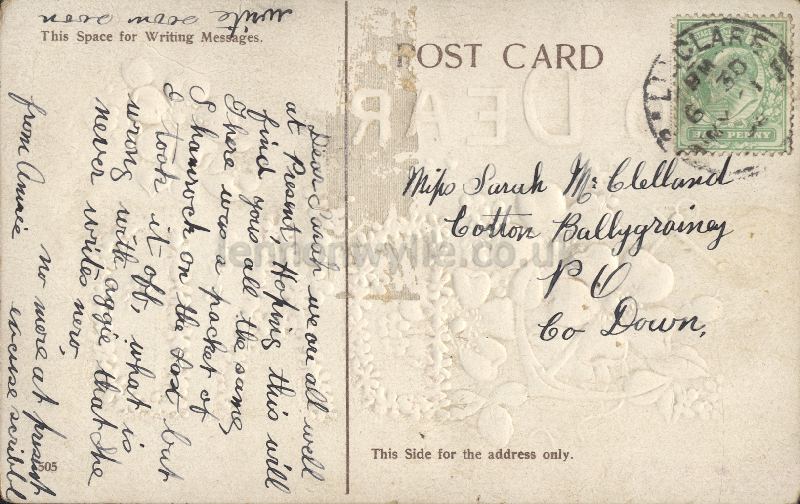 write soon soon
This Space for Writing Messages.
POST CARD
DEAR
HALF PENNY
6 PM
30
Miss Sarah McClelland
Cotton Ballygrainey
P O
Co Down,
Dear Sarah we are all well
at Present, Hoping this will
find yous all the same
There was a packet of
Shamrock on the last but
I took it off, what is
wrong with aggie that she
never writes nero,
no more at present
from Annie excuse scribbl
505
This Side for the address only.
lennonwylie.co.uk